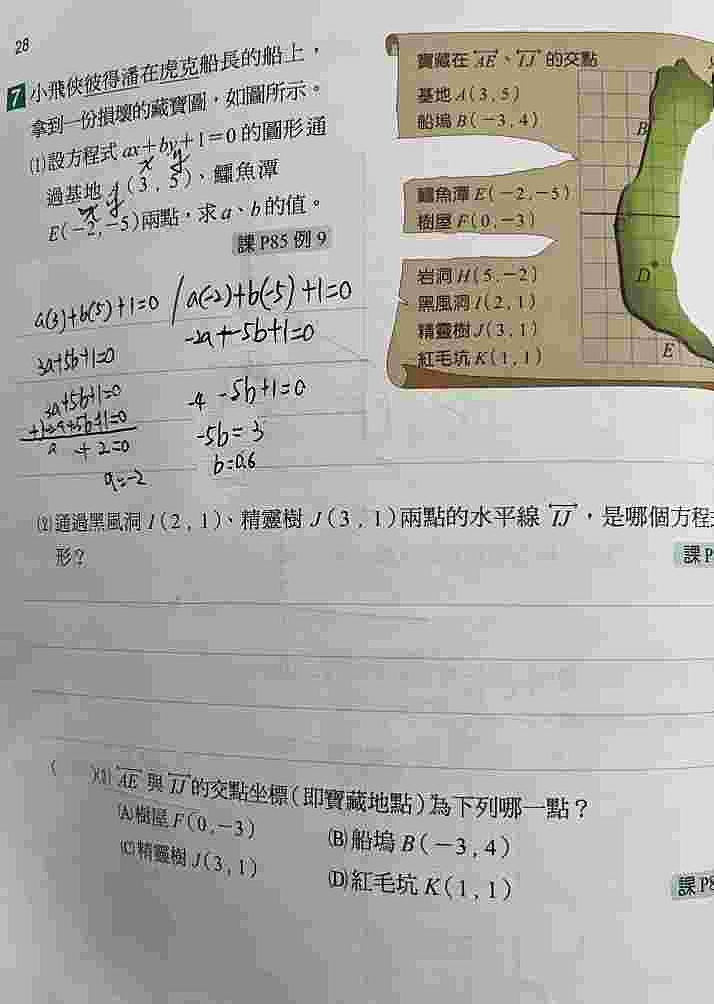 28
7 小飛俠彼得潘在虎克船長的船上，
拿到一份損壞的藏寶圖，如圖所示。
⑴設方程式 ax+by+1=0 的圖形通
x y
過基地 A(3,5)、鱷魚潭
x y
E(-2,-5)兩點，求 a、b 的值。
課 P85 例 9
寶藏在 AE、IJ 的交點
基地 A(3,5)
船塢 B(-3,4)
鱷魚潭 E(-2,-5)
樹屋 F(0,-3)
岩洞 H(5,-2)
黑風洞 I(2,1)
精靈樹 J(3,1)
紅毛坑 K(1,1)
B
D
E
a(3)+b(5)+1=0 / a(-2)+b(-5)+1=0
3a+5b+1=0
-2a+-5b+1=0
3a+5b+1=0
a +2=0
a=-2
-4 -5b+1=0
-5b=3
b=0.6
⑵通過黑風洞 I(2,1)、精靈樹 J(3,1)兩點的水平線 IJ，是哪個方程
形？
課 P
( )⑶ AE 與 IJ 的交點坐標(即寶藏地點)為下列哪一點？
(A)樹屋 F(0,-3)
(B)船塢 B(-3,4)
(C)精靈樹 J(3,1)
(D)紅毛坑 K(1,1)
課 P8